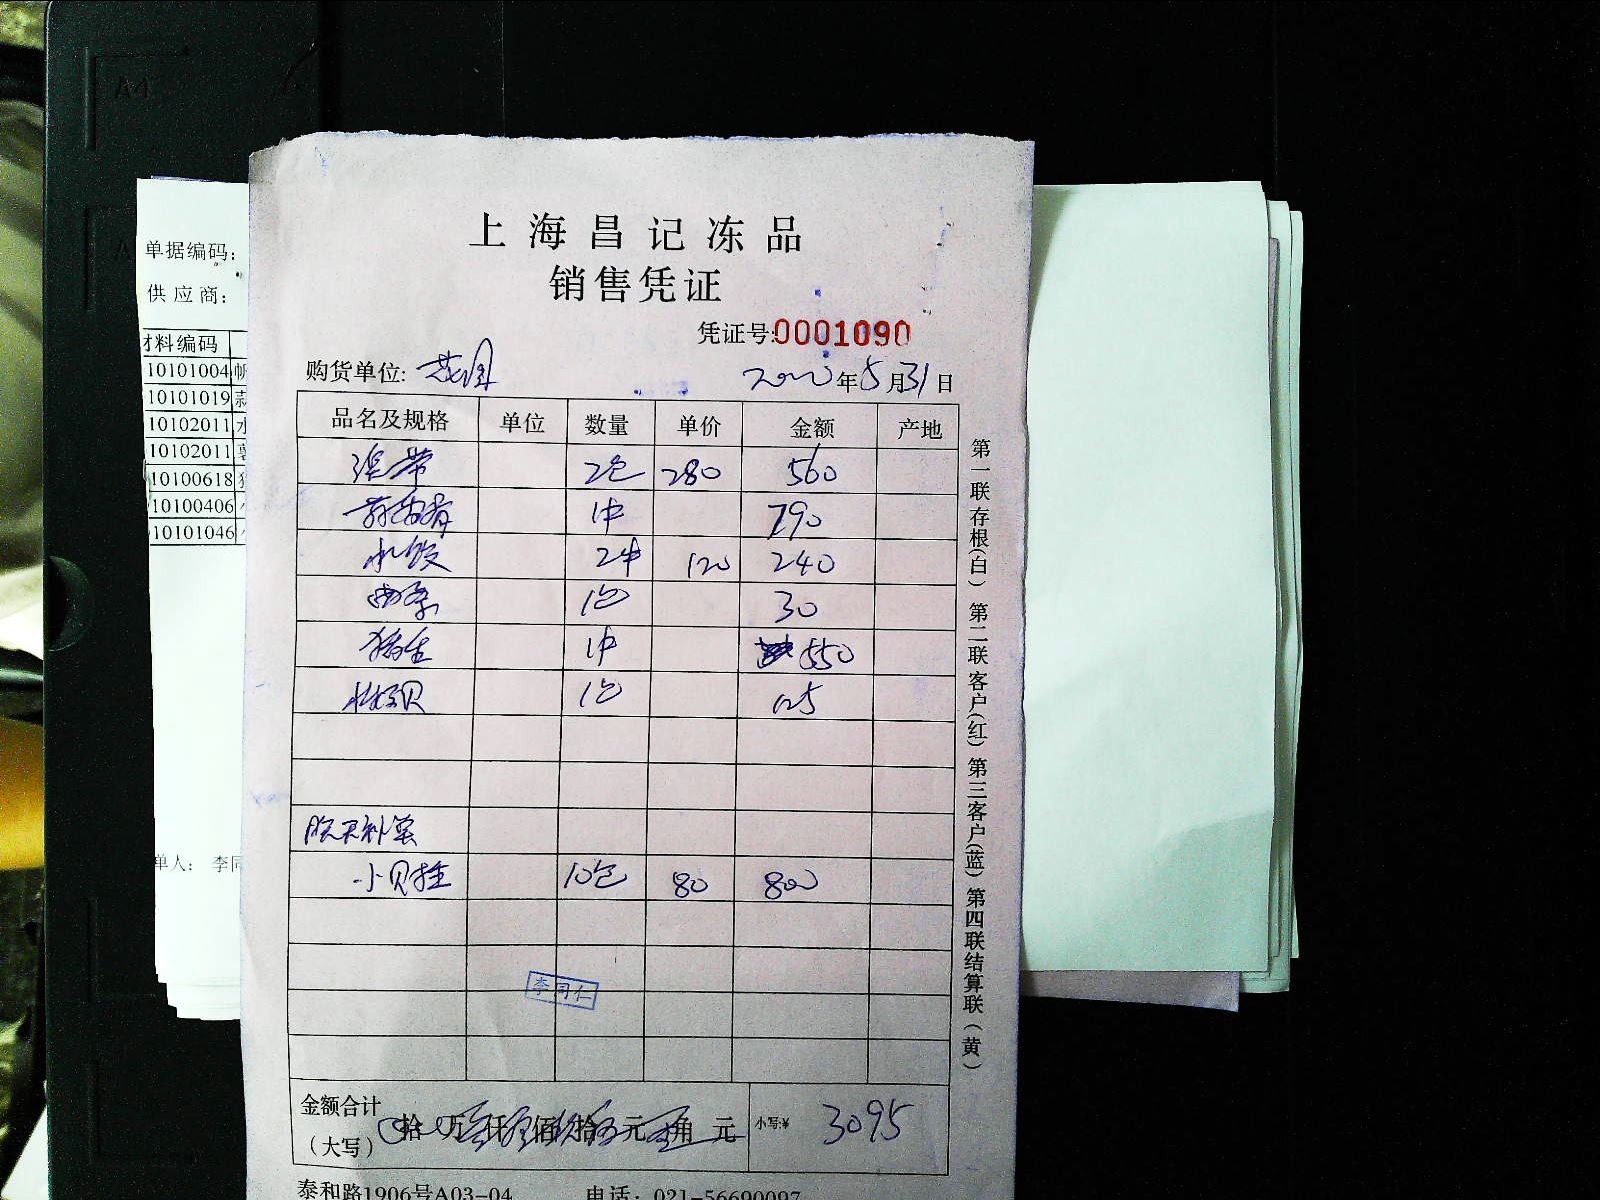 上海昌记冻品
销售凭证
凭证号:0001090
购货单位:
2020年5月31日
品名及规格 单位 数量 单价 金额 产地
2包 280 560
1件 790
水饺 2件 120 240
1包 30
1件 550
1包 125
小贝 10包 80 800
李同仁
金额合计
(大写) 拾 万 仟 佰 拾 元 角 元 小写:¥ 3095
泰和路1906号A03-04 电话: 021-56690097
第一联存根(白) 第二联客户(红) 第三客户(蓝) 第四联结算联(黄)
单据编码:
供应商:
材料编码
10101004
10101019
10102011
10102011
10100618
10100406
10101046
单人: 李同
A4